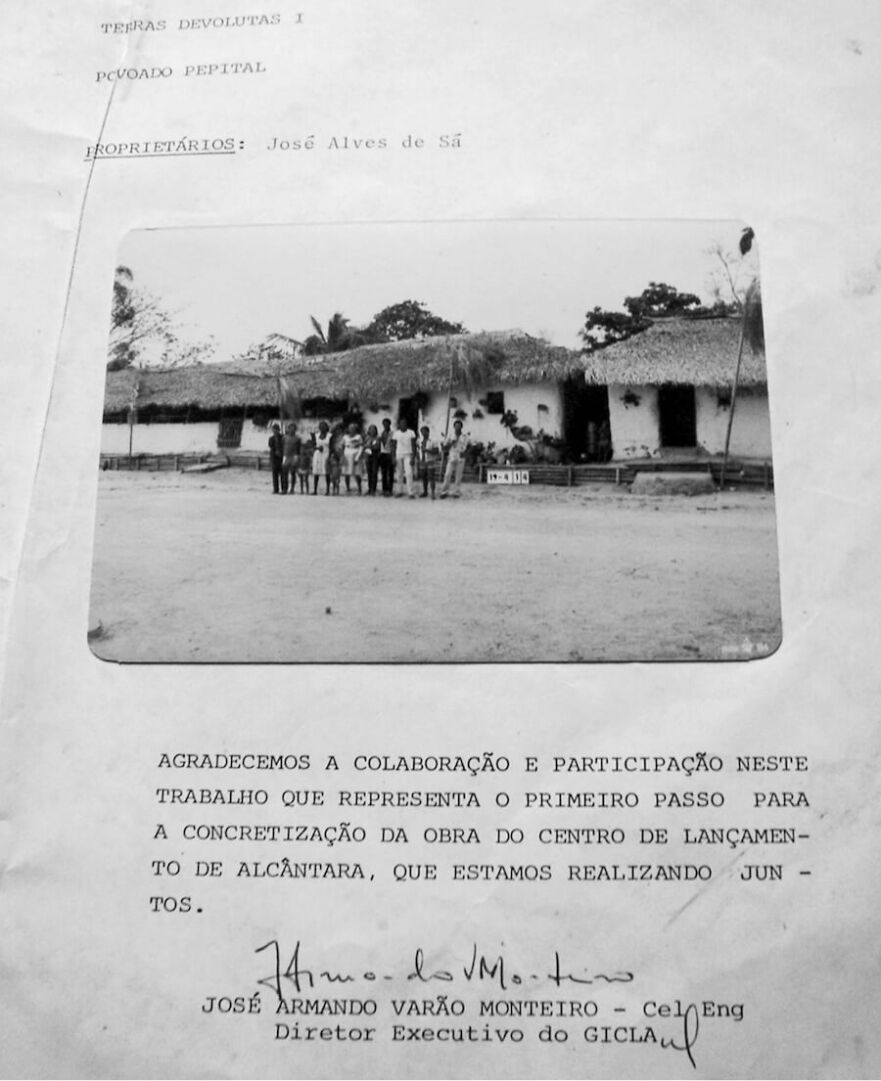 TERRAS DEVOLUTAS I
POVOADO PEPITAL
PROPRIETÁRIOS: José Alves de Sá
AGRADECEMOS A COLABORAÇÃO E PARTICIPAÇÃO NESTE
TRABALHO QUE REPRESENTA O PRIMEIRO PASSO PARA
A CONCRETIZAÇÃO DA OBRA DO CENTRO DE LANÇAMEN-
TO DE ALCÂNTARA, QUE ESTAMOS REALIZANDO JUN -
TOS.
JArmando VMonteiro
JOSÉ ARMANDO VARÃO MONTEIRO - Cel Eng
Diretor Executivo do GICLA